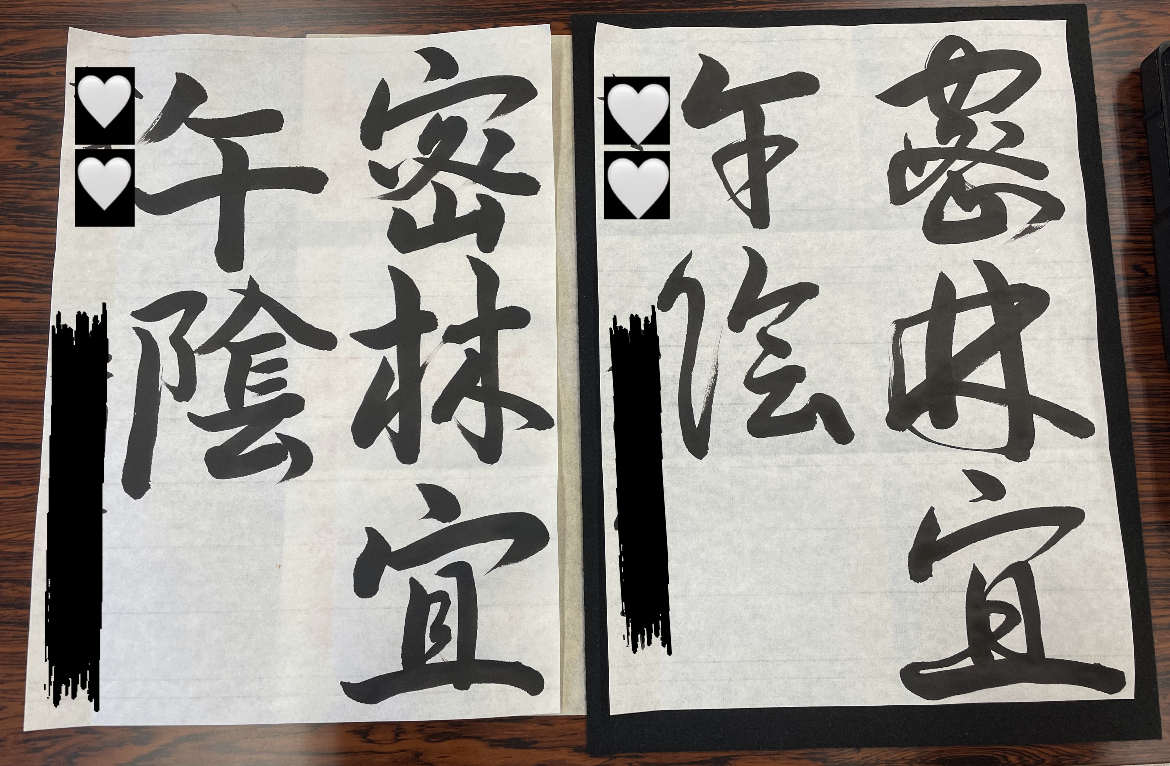 密林宜
午陰
密林宜
午陰